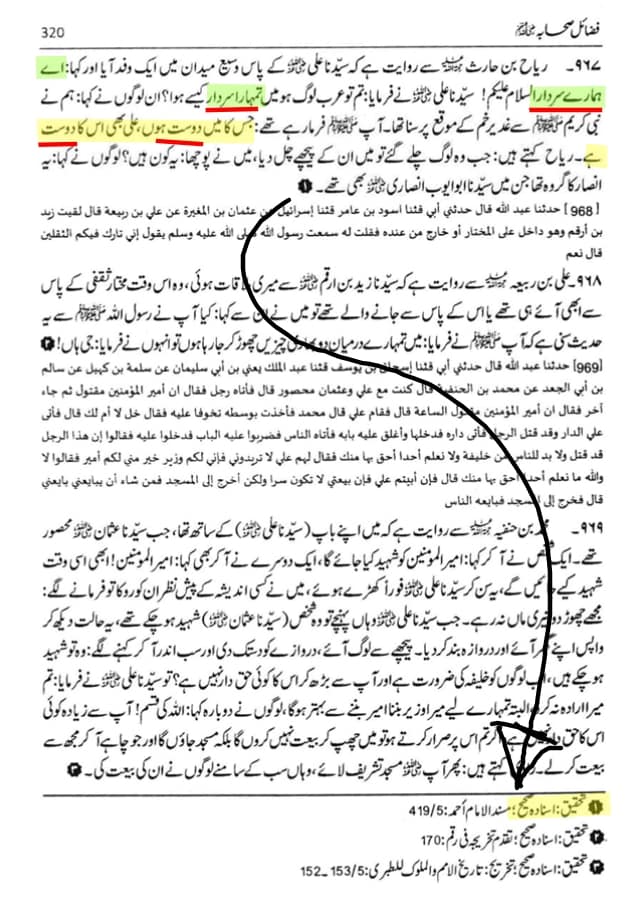 فضائل صحابہ ﷡ 320
۹۶۷۔ ریاح بن حارث ﷫ سے روایت ہے کہ سیّدنا علی ﷜ کے پاس وسیع میدان میں ایک وفد آیا اور کہا: اے
ہمارے سردار! السلام علیکم! سیّدنا علی ﷜ نے فرمایا: تم تو عرب لوگ ہو میں تمہارا سردار کیسے ہوا؟ ان لوگوں نے کہا: ہم نے
نبی کریم ﷺ سے غدیرِ خم کے موقع پر سنا تھا۔ آپ ﷺ فرما رہے تھے: جس کا میں دوست ہوں، علی بھی اس کا دوست
ہے۔ ریاح کہتے ہیں: جب وہ لوگ چلے گئے تو میں ان کے پیچھے چل دیا، میں نے پوچھا: یہ کون ہیں؟ لوگوں نے کہا: یہ
انصار کا گروہ تھا جن میں سیّدنا ابوایوب انصاری ﷜ بھی تھے۔ ❶
[968] حدثنا عبد الله قال حدثني أبي قثنا اسود بن عامر قثنا إسرائيل عن عثمان بن المغيرة عن علي بن ربيعة قال لقيت زيد
بن أرقم وهو داخل على المختار أو خارج من عنده فقلت له سمعت رسول الله صلى الله عليه وسلم يقول إني تارك فيكم الثقلين
قال نعم
۹۶۸۔ علی بن ربیعہ ﷫ سے روایت ہے کہ سیّدنا زید بن ارقم ﷜ سے میری ملاقات ہوئی، وہ اس وقت مختار ثقفی کے پاس
سے ابھی آئے ہی تھے یا اس کے پاس سے جانے والے تھے تو میں نے ان سے کہا: کیا آپ نے رسول اللہ ﷺ سے یہ
حدیث سنی ہے کہ آپ ﷺ نے فرمایا: میں تمہارے درمیان دو بھاری چیزیں چھوڑ کر جا رہا ہوں تو انہوں نے فرمایا: جی ہاں! ❷
[969] حدثنا عبد الله قال حدثني أبي قثنا إسحاق بن يوسف قثنا عبد الملك يعني بن أبي سليمان عن سلمة بن كهيل عن سالم
بن أبي الجعد عن محمد بن الحنفية قال كنت مع علي وعثمان محصور قال فأتاه رجل فقال ان أمير المؤمنين مقتول ثم جاء
آخر فقال ان أمير المؤمنين مقتول الساعة قال فقام علي قال محمد فأخذت بوسطه تخوفا عليه فقال خل لا أم لك قال فأتى
علي الدار وقد قتل الرجل فأتى داره فدخلها وأغلق عليه بابه فأتاه الناس فضربوا عليه الباب فدخلوا عليه فقالوا إن هذا الرجل
قد قتل ولا بد للناس من خليفة ولا نعلم أحدا أحق بها منك فقال لهم علي لا تريدوني فإني لكم وزير خير مني لكم أمير فقالوا لا
والله ما نعلم أحدا أحق بها منك قال فإن أبيتم علي فإن بيعتي لا تكون سرا ولكن أخرج إلى المسجد فمن شاء أن يبايعني بايعني
قال فخرج إلى المسجد فبايعه الناس
۹۶۹۔ محمد بن حنفیہ ﷫ سے روایت ہے کہ میں اپنے باپ (سیّدنا علی ﷜) کے ساتھ تھا، جب سیّدنا عثمان ﷜ محصور
تھے۔ ایک شخص نے آ کر کہا: امیر المؤمنین کو شہید کیا جائے گا، ایک دوسرے نے آ کر بھی کہا: امیر المؤمنین! ابھی اسی وقت
شہید کیے جائیں گے، یہ سن کر سیّدنا علی ﷜ فوراً کھڑے ہوئے، میں نے کسی اندیشہ کے پیشِ نظر ان کو روکا تو فرمانے لگے:
مجھے چھوڑ دو تیری ماں نہ رہے۔ جب سیّدنا علی ﷜ وہاں پہنچے تو وہ شخص (سیّدنا عثمان ﷜) شہید ہو چکے تھے، یہ حالت دیکھ کر
واپس اپنے گھر آئے اور دروازہ بند کر دیا۔ پیچھے سے لوگ آئے، دروازے کو دستک دی اور سب اندر آ کر کہنے لگے: وہ تو شہید
ہو چکے ہیں، اب لوگوں کو خلیفہ کی ضرورت ہے اور آپ سے بڑھ کر اس کا کوئی حق دار نہیں ہے؟ تو سیّدنا علی ﷜ نے فرمایا: تم
میرا ارادہ نہ کرو، البتہ تمہارے لیے میرا وزیر بننا امیر بننے سے بہتر ہوگا، لوگوں نے دوبارہ کہا: اللہ کی قسم! آپ سے زیادہ کوئی
اس کا حق دار نہیں ہے، اگر تم اس پر اصرار کرتے ہو تو میں چھپ کر بیعت نہیں کروں گا بلکہ مسجد جاؤں گا اور جو چاہے آ کر مجھ سے
بیعت کر لے۔ راوی کہتے ہیں: پھر آپ ﷜ مسجد تشریف لائے، وہاں سب کے سامنے لوگوں نے ان کی بیعت کی۔ ❸
❶ تحقیق: اسنادہ صحیح؛ مسند الامام احمد: 419/5
❷ تحقیق: اسنادہ صحیح؛ تقدم تخریجہ فی رقم: 170
❸ تحقیق: اسنادہ صحیح؛ تخریج: تاریخ الامم والملوک للطبری: 153/5۔152